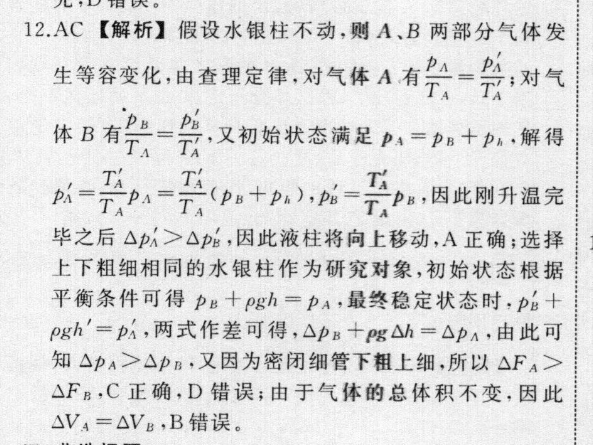 元,D 错误。
12.AC 【解析】假设水银柱不动,则 A、B 两部分气体发
生等容变化,由查理定律,对气体 A 有 p_A/T_A = p_A′/T_A′;对气
体 B 有 p_B/T_A = p_B′/T_A′,又初始状态满足 p_A = p_B + p_h,解得
p_A′ = T_A′/T_A p_A = T_A′/T_A (p_B + p_h), p_B′ = T_A′/T_A p_B,因此刚升温完
毕之后 Δp_A′ > Δp_B′,因此液柱将向上移动,A 正确;选择
上下粗细相同的水银柱作为研究对象,初始状态根据
平衡条件可得 p_B + ρgh = p_A,最终稳定状态时,p_B′ +
ρgh′ = p_A′,两式作差可得,Δp_B + ρgΔh = Δp_A,由此可
知 Δp_A > Δp_B,又因为密闭细管下粗上细,所以 ΔF_A >
ΔF_B,C 正确,D 错误;由于气体的总体积不变,因此
ΔV_A = ΔV_B,B 错误。